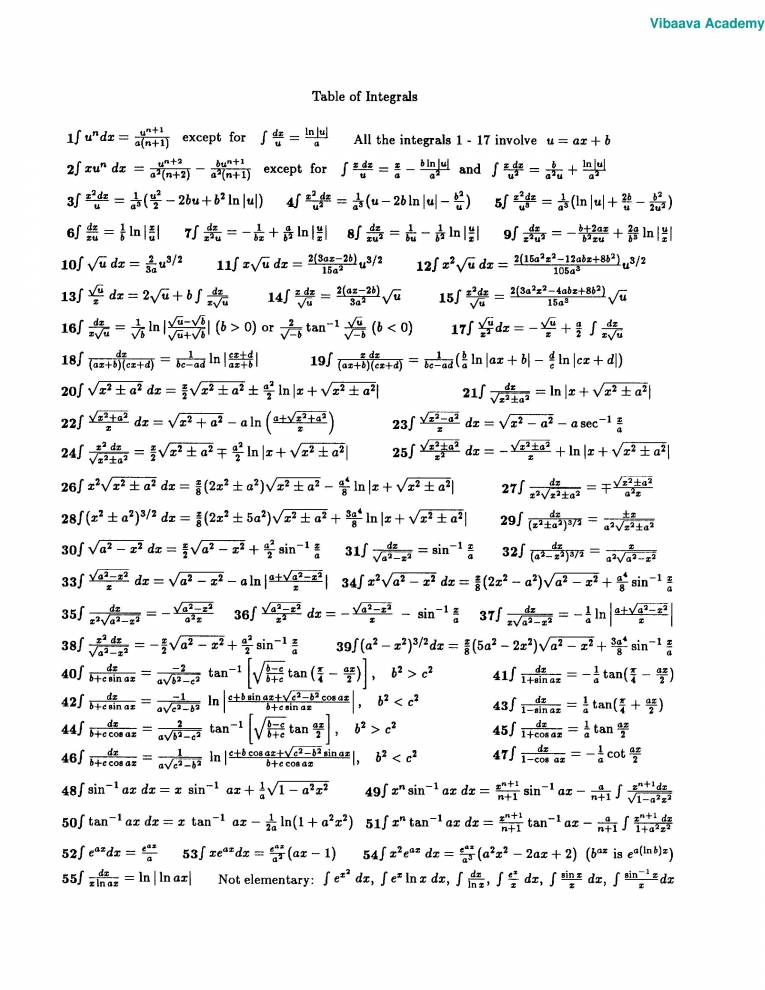 Vibaava Academy
Table of Integrals
1∫ uⁿdx = uⁿ⁺¹/a(n+1) except for ∫ dx/u = ln|u|/a All the integrals 1 - 17 involve u = ax + b
2∫ xuⁿ dx = uⁿ⁺²/a²(n+2) − buⁿ⁺¹/a²(n+1) except for ∫ x dx/u = x/a − b ln|u|/a² and ∫ x dx/u² = b/a²u + ln|u|/a²
3∫ x²dx/u = 1/a³(u²/2 − 2bu + b² ln|u|) 4∫ x²dx/u² = 1/a³(u − 2b ln|u| − b²/u) 5∫ x²dx/u³ = 1/a³(ln|u| + 2b/u − b²/2u²)
6∫ dx/xu = 1/b ln|x/u| 7∫ dx/x²u = −1/bx + a/b² ln|u/x| 8∫ dx/xu² = 1/bu − 1/b² ln|u/x| 9∫ dx/x²u² = −b+2ax/b²xu + 2a/b³ ln|u/x|
10∫ √u dx = 2/3a u³/² 11∫ x√u dx = 2(3ax−2b)/15a² u³/² 12∫ x²√u dx = 2(15a²x²−12abx+8b²)/105a³ u³/²
13∫ √u/x dx = 2√u + b∫ dx/x√u 14∫ x dx/√u = 2(ax−2b)/3a² √u 15∫ x²dx/√u = 2(3a²x²−4abx+8b²)/15a³ √u
16∫ dx/x√u = 1/√b ln|√u−√b/√u+√b| (b > 0) or 2/√−b tan⁻¹ √u/√−b (b < 0) 17∫ √u/x² dx = −√u/x + a/2 ∫ dx/x√u
18∫ dx/(ax+b)(cx+d) = 1/bc−ad ln|cx+d/ax+b| 19∫ x dx/(ax+b)(cx+d) = 1/bc−ad(b/a ln|ax + b| − d/c ln|cx + d|)
20∫ √x² ± a² dx = x/2 √x² ± a² ± a²/2 ln|x + √x² ± a²| 21∫ dx/√x²±a² = ln|x + √x² ± a²|
22∫ √x²+a²/x dx = √x² + a² − a ln(a+√x²+a²/x) 23∫ √x²−a²/x dx = √x² − a² − a sec⁻¹ x/a
24∫ x² dx/√x²±a² = x/2 √x² ± a² ∓ a²/2 ln|x + √x² ± a²| 25∫ √x²±a²/x² dx = −√x²±a²/x + ln|x + √x² ± a²|
26∫ x²√x² ± a² dx = x/8(2x² ± a²)√x² ± a² − a⁴/8 ln|x + √x² ± a²| 27∫ dx/x²√x²±a² = ∓√x²±a²/a²x
28∫(x² ± a²)³/² dx = x/8(2x² ± 5a²)√x² ± a² + 3a⁴/8 ln|x + √x² ± a²| 29∫ dx/(x²±a²)³/² = ±x/a²√x²±a²
30∫ √a² − x² dx = x/2 √a² − x² + a²/2 sin⁻¹ x/a 31∫ dx/√a²−x² = sin⁻¹ x/a 32∫ dx/(a²−x²)³/² = x/a²√a²−x²
33∫ √a²−x²/x dx = √a² − x² − a ln|a+√a²−x²/x| 34∫ x²√a² − x² dx = x/8(2x² − a²)√a² − x² + a⁴/8 sin⁻¹ x/a
35∫ dx/x²√a²−x² = −√a²−x²/a²x 36∫ √a²−x²/x² dx = −√a²−x²/x − sin⁻¹ x/a 37∫ dx/x√a²−x² = −1/a ln|a+√a²−x²/x|
38∫ x² dx/√a²−x² = −x/2 √a² − x² + a²/2 sin⁻¹ x/a 39∫(a² − x²)³/²dx = x/8(5a² − 2x²)√a² − x² + 3a⁴/8 sin⁻¹ x/a
40∫ dx/b+c sin ax = −2/a√b²−c² tan⁻¹ [√b−c/b+c tan(π/4 − ax/2)], b² > c² 41∫ dx/1+sin ax = −1/a tan(π/4 − ax/2)
42∫ dx/b+c sin ax = −1/a√c²−b² ln|c+b sin ax+√c²−b² cos ax/b+c sin ax|, b² < c² 43∫ dx/1−sin ax = 1/a tan(π/4 + ax/2)
44∫ dx/b+c cos ax = 2/a√b²−c² tan⁻¹ [√b−c/b+c tan ax/2], b² > c² 45∫ dx/1+cos ax = 1/a tan ax/2
46∫ dx/b+c cos ax = 1/a√c²−b² ln|c+b cos ax+√c²−b² sin ax/b+c cos ax|, b² < c² 47∫ dx/1−cos ax = −1/a cot ax/2
48∫ sin⁻¹ ax dx = x sin⁻¹ ax + 1/a √1 − a²x² 49∫ xⁿ sin⁻¹ ax dx = xⁿ⁺¹/n+1 sin⁻¹ ax − a/n+1 ∫ xⁿ⁺¹dx/√1−a²x²
50∫ tan⁻¹ ax dx = x tan⁻¹ ax − 1/2a ln(1 + a²x²) 51∫ xⁿ tan⁻¹ ax dx = xⁿ⁺¹/n+1 tan⁻¹ ax − a/n+1 ∫ xⁿ⁺¹ dx/1+a²x²
52∫ eᵃˣdx = eᵃˣ/a 53∫ xeᵃˣdx = eᵃˣ/a²(ax − 1) 54∫ x²eᵃˣ dx = eᵃˣ/a³(a²x² − 2ax + 2) (bᵃˣ is e^a(ln b)x)
55∫ dx/x ln ax = ln | ln ax| Not elementary: ∫ e^x² dx, ∫ eˣ ln x dx, ∫ dx/ln x, ∫ eˣ/x dx, ∫ sin x/x dx, ∫ sin⁻¹ x/x dx